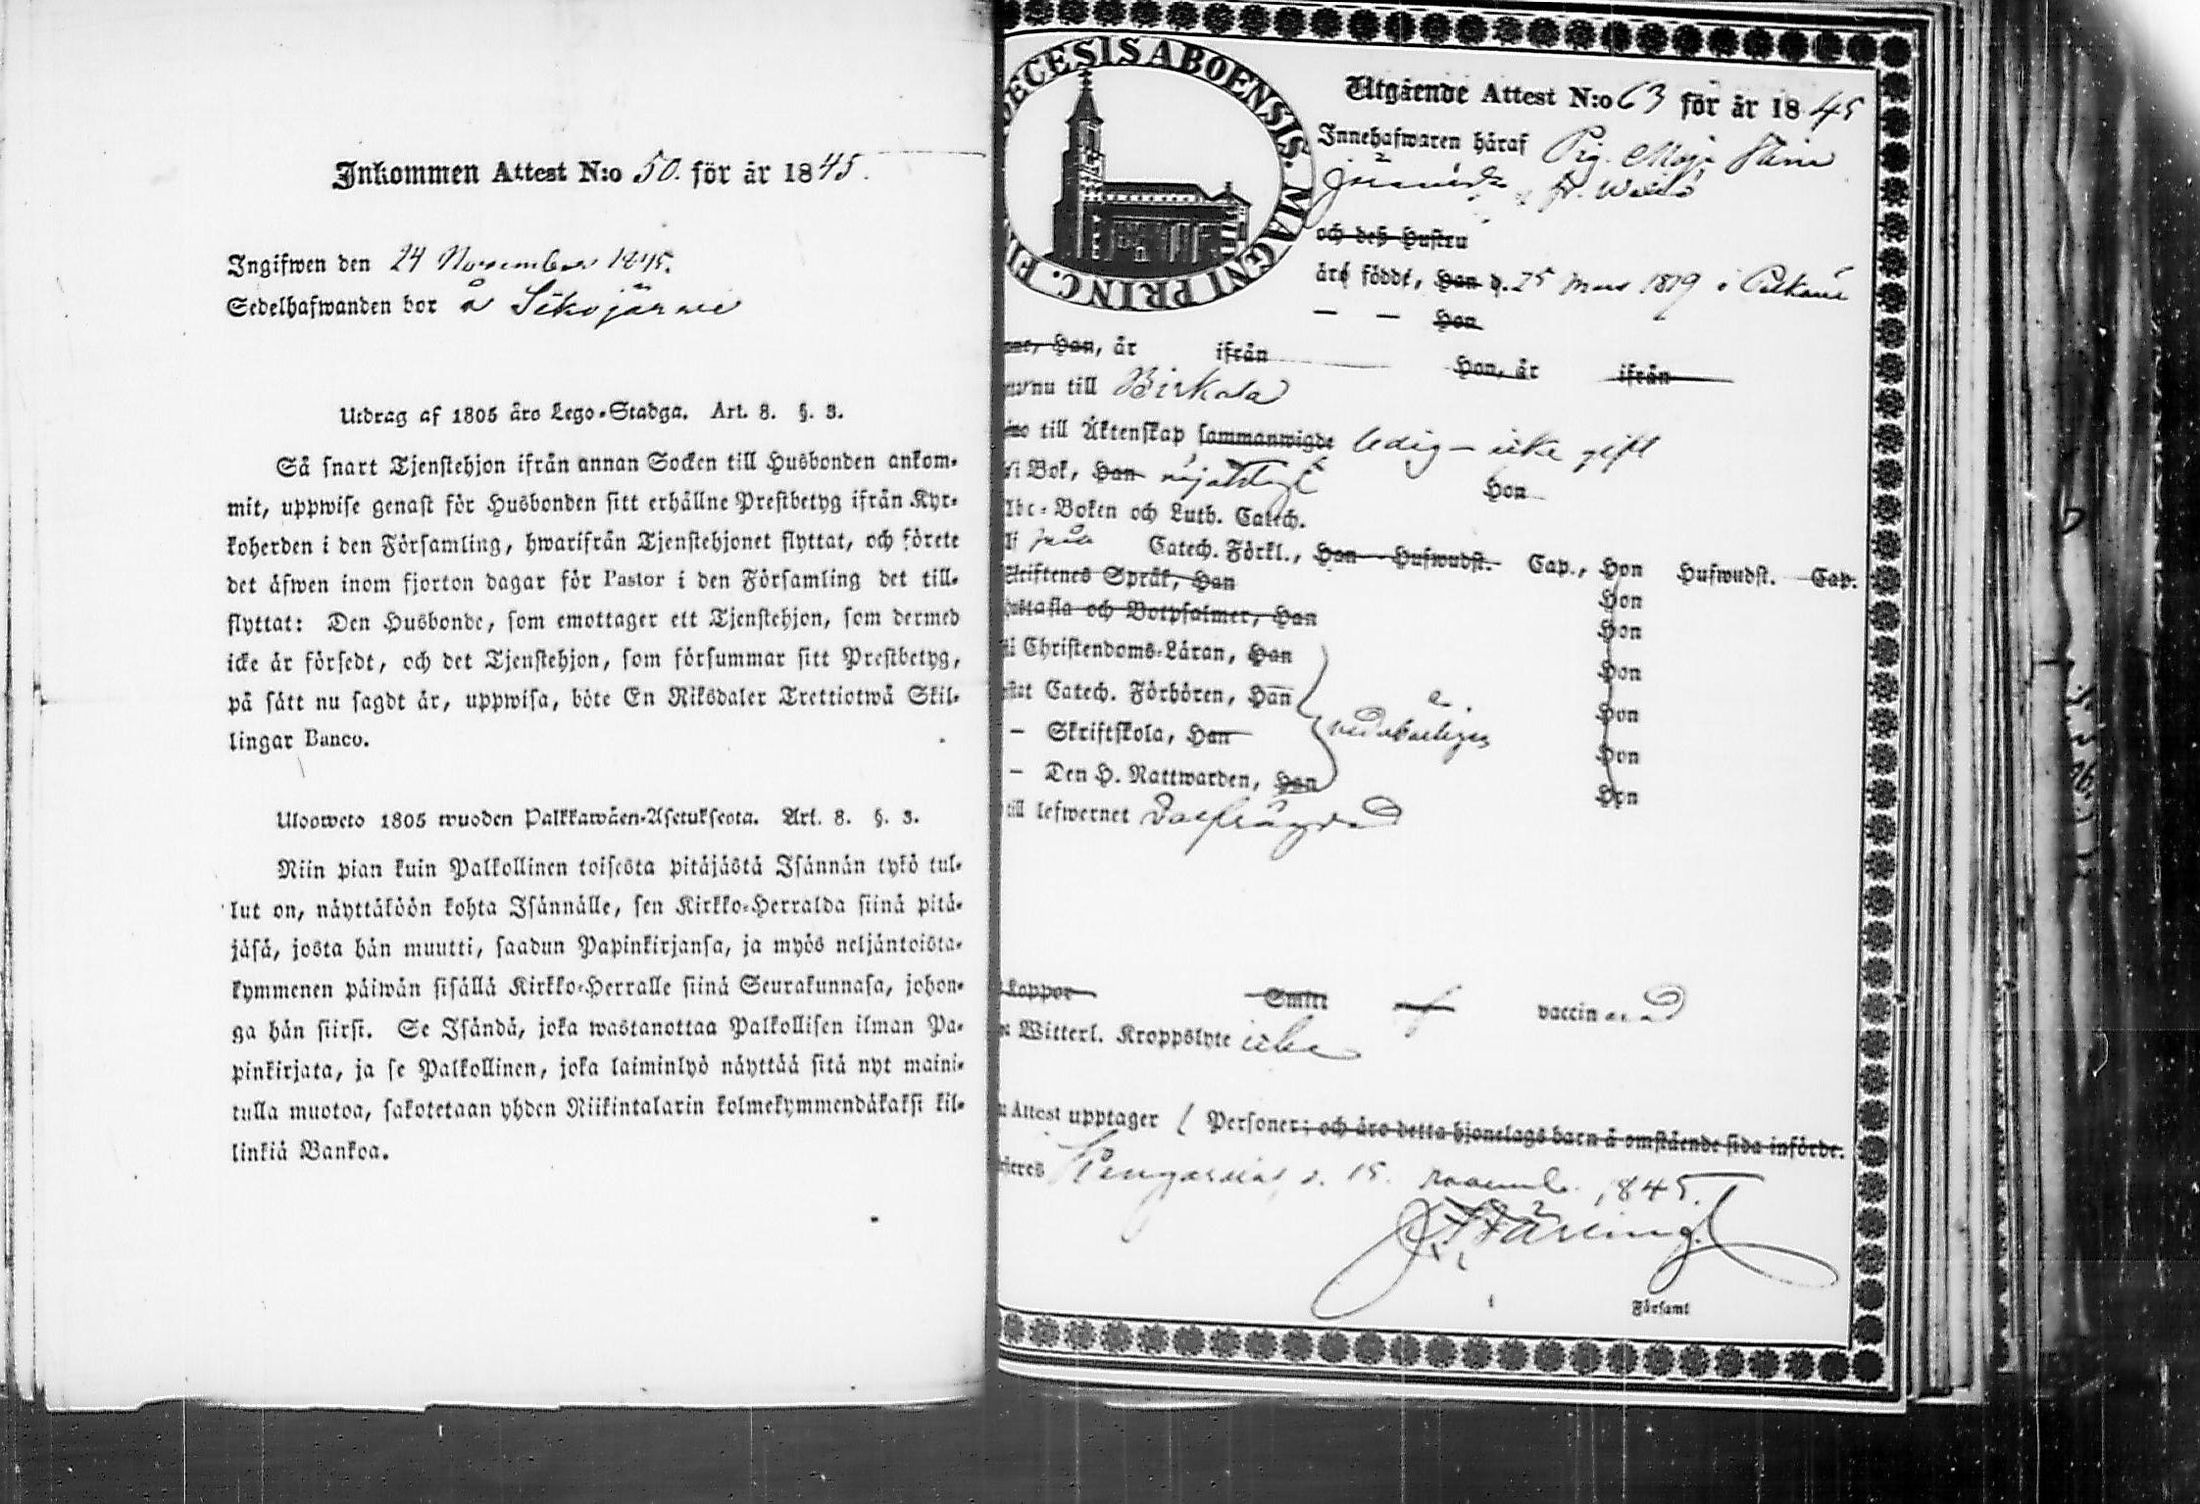 Inkommen Attest N:o 50. för år 1845.
Ingifwen den 24 November 1845.
Sedelhafwanden bor å Sikojärwi
Utdrag af 1805 års Lego-Stadga. Art. 8. §. 3.
Så snart Tjenstehjon ifrån annan Socken till Husbonden ankom-
mit, uppwise genast för Husbonden sitt erhållne Prestbetyg ifrån Kyr-
koherden i den Församling, hwarifrån Tjenstehjonet flyttat, och förete
det äfwen inom fjorton dagar för Pastor i den Församling det till-
flyttat: Den Husbonde, som emottager ett Tjenstehjon, som dermed
icke är försedt, och det Tjenstehjon, som försummar sitt Prestbetyg,
på sätt nu sagdt är, uppwisa, böte En Riksdaler Trettiotwå Skil-
lingar Banco.
Ulosweto 1805 wuoden Palkkawäen-Asetuksesta. Art. 8. §. 3.
Niin pian kuin Palkollinen toisesta pitäjästä Isännän tykö tul-
lut on, näyttäköön kohta Isännälle, sen Kirkko-Herralda siinä pitä-
jäsä, josta hän muutti, saadun Papinkirjansa, ja myös neljäntoista-
kymmenen päiwän sisällä Kirkko-Herralle siinä Seurakunnasa, johon-
ga hän siirsi. Se Isändä, joka wastanottaa Palkollisen ilman Pa-
pinkirjata, ja se Palkollinen, joka laiminlyö näyttää sitä nyt maini-
tulla muotoa, sakotetaan yhden Riikintalarin kolmekymmendäkaksi kil-
linkiä Bankoa.
ECESIS ABOENSIS. MAGNI PRINC. FI
Utgående Attest N:o 63 för år 1845
Innehafwaren häraf Pig. Maja Stina
och deß Hustru
äro född, Han d. 25 Mars 1819 i Pelkäne
— — Hon
Han, är ifrån Hon, är ifrån
nu till Birkala
till Äktenskap sammanwigde ledig – icke gift
i Bok, Han nöjaktigt Hon
Abc-Boken och Luth. Catech.
Catech. Förkl., Han Hufwudst. Cap., Hon Hufwudst. Cap.
Skriftenes Språk, Han Hon
och Botpsalmer, Han Hon
Christendoms-Läran, Han Hon
Catech. Förhören, Han Hon
— Skriftskola, Han Hon
— Den H. Nattwarden, Han Hon
till lefwernet välfrägdad
koppor Smitt vaccinerad
Witterl. Kroppslyte icke
Attest upptager 1 Personer; och äro detta hjonelags barn å omstående sida införde.
d. 15. novemb. 1845.
Församl